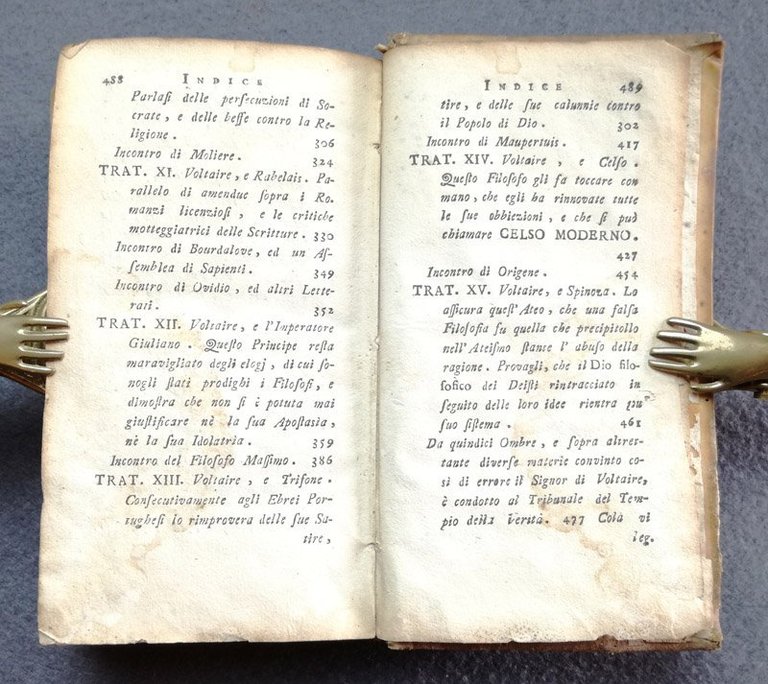 488 INDICE
Parlasi delle persecuzioni di So-
crate, e delle beffe contro la Re-
ligione. 306
Incontro di Moliere. 324
TRAT. XI. Voltaire, e Rabelais. Pa-
rallelo di amendue sopra i Ro-
manzi licenziosi, e le critiche
motteggiatrici delle Scritture. 330
Incontro di Bourdalove, ed un As-
semblea di Sapienti. 349
Incontro di Ovidio, ed altri Lette-
rati. 352
TRAT. XII. Voltaire, e l'Imperatore
Giuliano. Questo Principe resta
maravigliato degli elogj, di cui so-
nogli stati prodighi i Filosofi, e
dimostra che non si è potuta mai
giustificare nè la sua Apostasia,
nè la sua Idolatria. 359
Incontro del Filosofo Massimo. 386
TRAT. XIII. Voltaire, e Trifone.
Consecutivamente agli Ebrei Por-
tughesi lo rimprovera delle sue Sa-
tire,
INDICE 489
tire, e delle sue calunnie contro
il Popolo di Dio. 302
Incontro di Maupertuis. 417
TRAT. XIV. Voltaire, e Celso.
Questo Filosofo gli fa toccare con
mano, che egli ha rinnovate tutte
le sue obbiezioni, e che si può
chiamare CELSO MODERNO.
427
Incontro di Origene. 454
TRAT. XV. Voltaire, e Spinoza. Lo
assicura quest'Ateo, che una falsa
Filosofia fu quella che precipitollo
nell'Ateismo stante l'abuso della
ragione. Provagli, che il Dio filo-
sofico dei Deisti rintracciato in
seguito delle loro idee rientra
suo sistema. 461
Da quindici Ombre, e sopra altret-
tante diverse materie convinto co-
sì di errore il Signor di Voltaire,
è condotto al Tribunale del Tem-
pio della Verità. 477 Colà vi
leg.